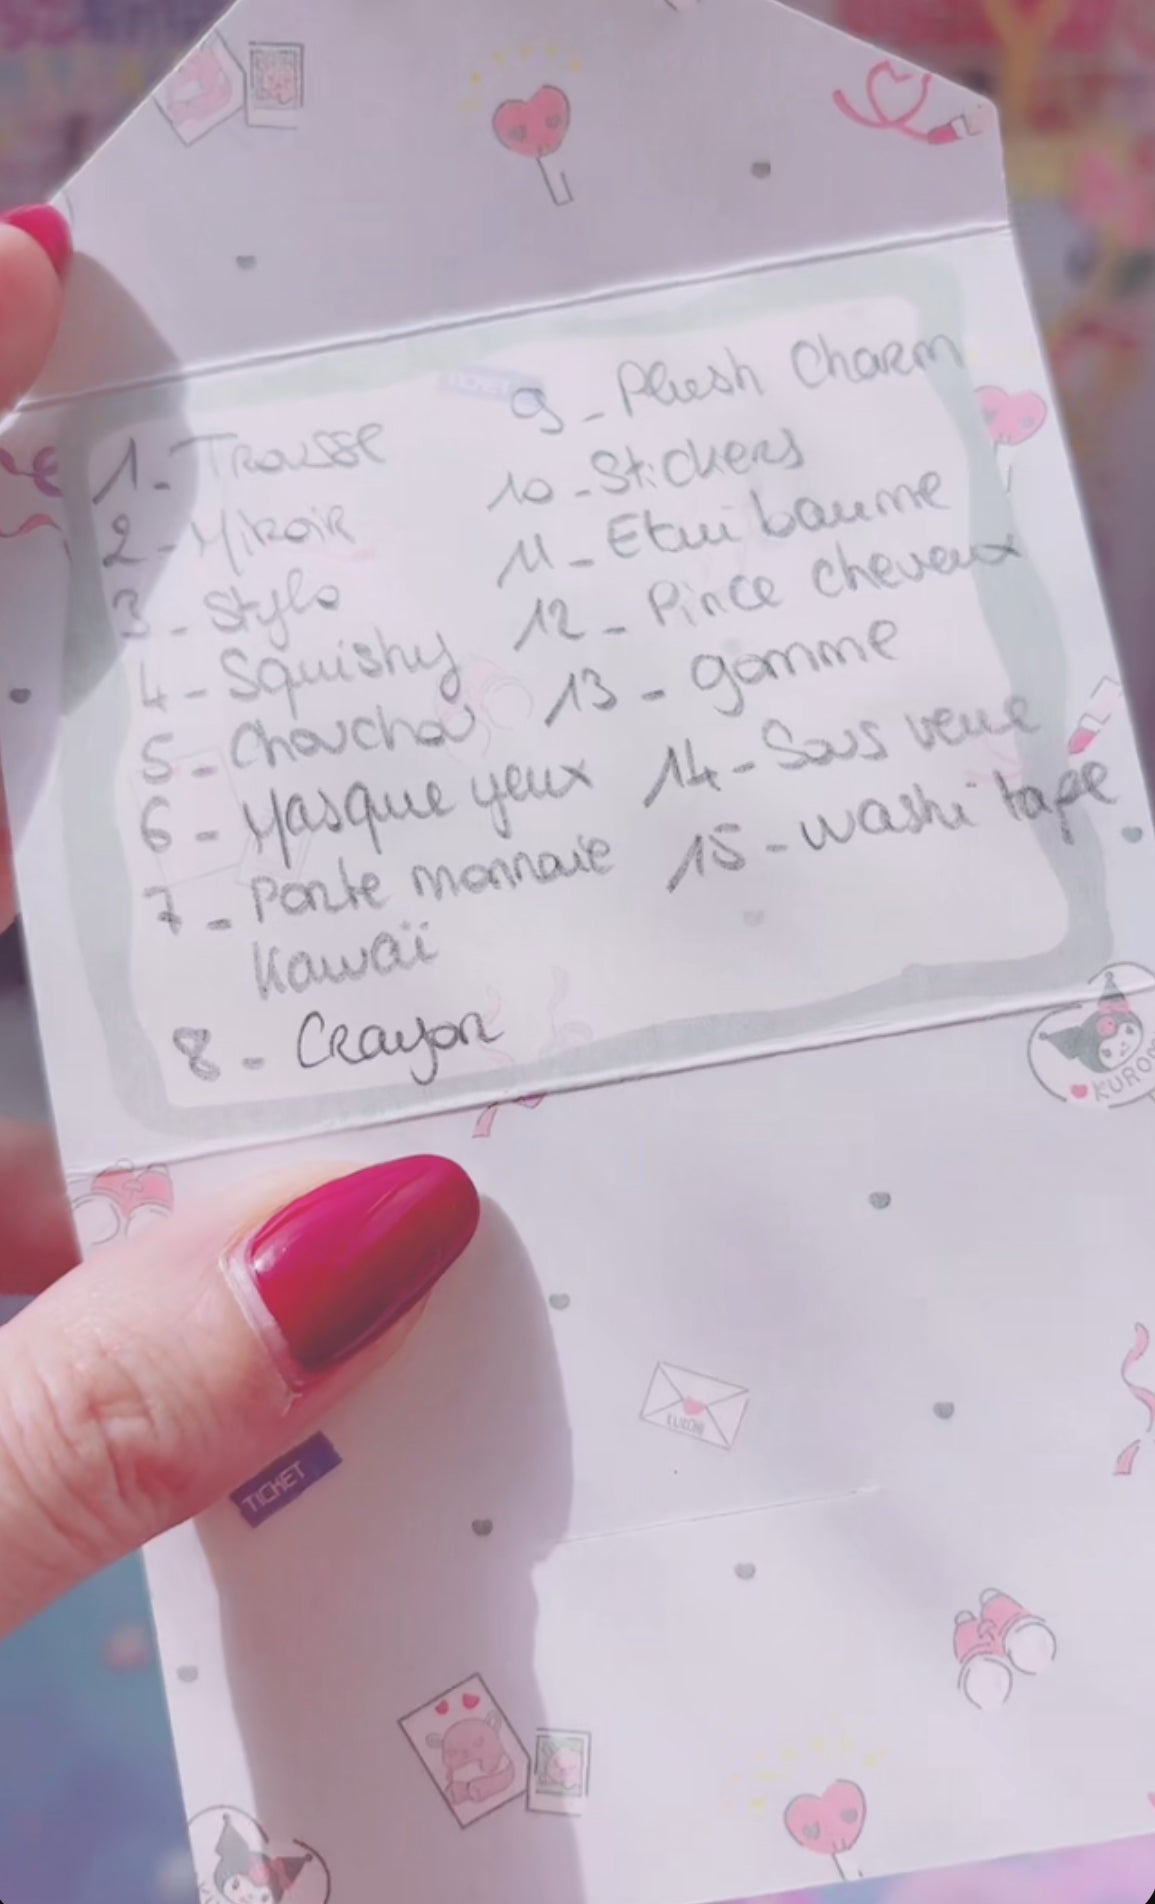 1 - Trousse
2 - Miroir
3 - Stylo
4 - Squishy
5 - Chouchou
6 - Masque yeux
7 - Porte monnaie
Kawaï
8 - Crayon
9 - Plush Charm
10 - Stickers
11 - Etui baume
12 - Pince cheveux
13 - gomme
14 - Sous verre
15 - washi tape
TICKET
KUROMI
KUROMI
TICKET